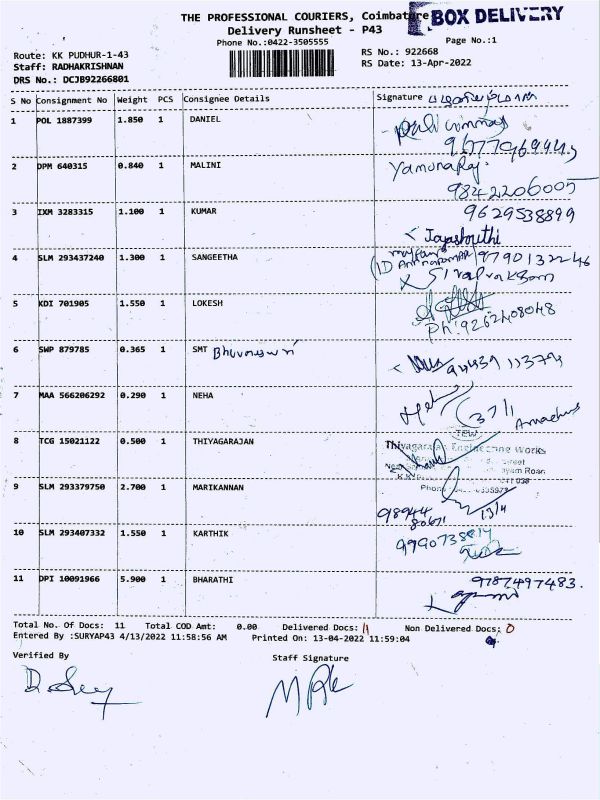 THE PROFESSIONAL COURIERS, Coimbature
BOX DELIVERY
Delivery Runsheet - P43
Phone No.:0422-3505555
Page No.:1
Route: KK PUDHUR-1-43
RS No.: 922668
Staff: RADHAKRISHNAN
RS Date: 13-Apr-2022
DRS No.: DCJB92266801
S No Consignment No Weight PCS Consignee Details Signature
1 POL 1887399 1.850 1 DANIEL
2 DPM 640315 0.840 1 MALINI Yamuna Raj.
9842206005
3 IXM 3283315 1.100 1 KUMAR 9629538899
Jayashruthi
4 SLM 293437240 1.300 1 SANGEETHA 9790132246
5 KDI 701905 1.550 1 LOKESH
Ph: 9262408048
6 SWP 879785 0.365 1 SMT Bhuvaneswari
7 MAA 566206292 0.290 1 NEHA
8 TCG 15021122 0.500 1 THIYAGARAJAN
TEW
Thiyagarajan Engineering Works
9 SLM 293379750 2.700 1 MARIKANNAN
98944
80671 13/4
10 SLM 293407332 1.550 1 KARTHIK
11 DPI 10091966 5.900 1 BHARATHI 9787497483.
Total No. Of Docs: 11 Total COD Amt: 0.00 Delivered Docs: 11 Non Delivered Docs: 0
Entered By :SURYAP43 4/13/2022 11:58:56 AM Printed On: 13-04-2022 11:59:04
Verified By
Staff Signature